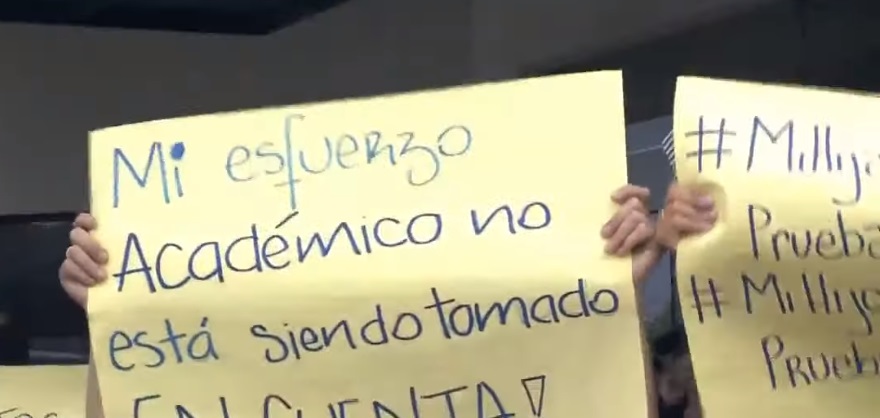 Mi esfuerzo
Académico no
está siendo tomado
EN CUENTA!
#Milly
Prueb
#Milly
Prueb